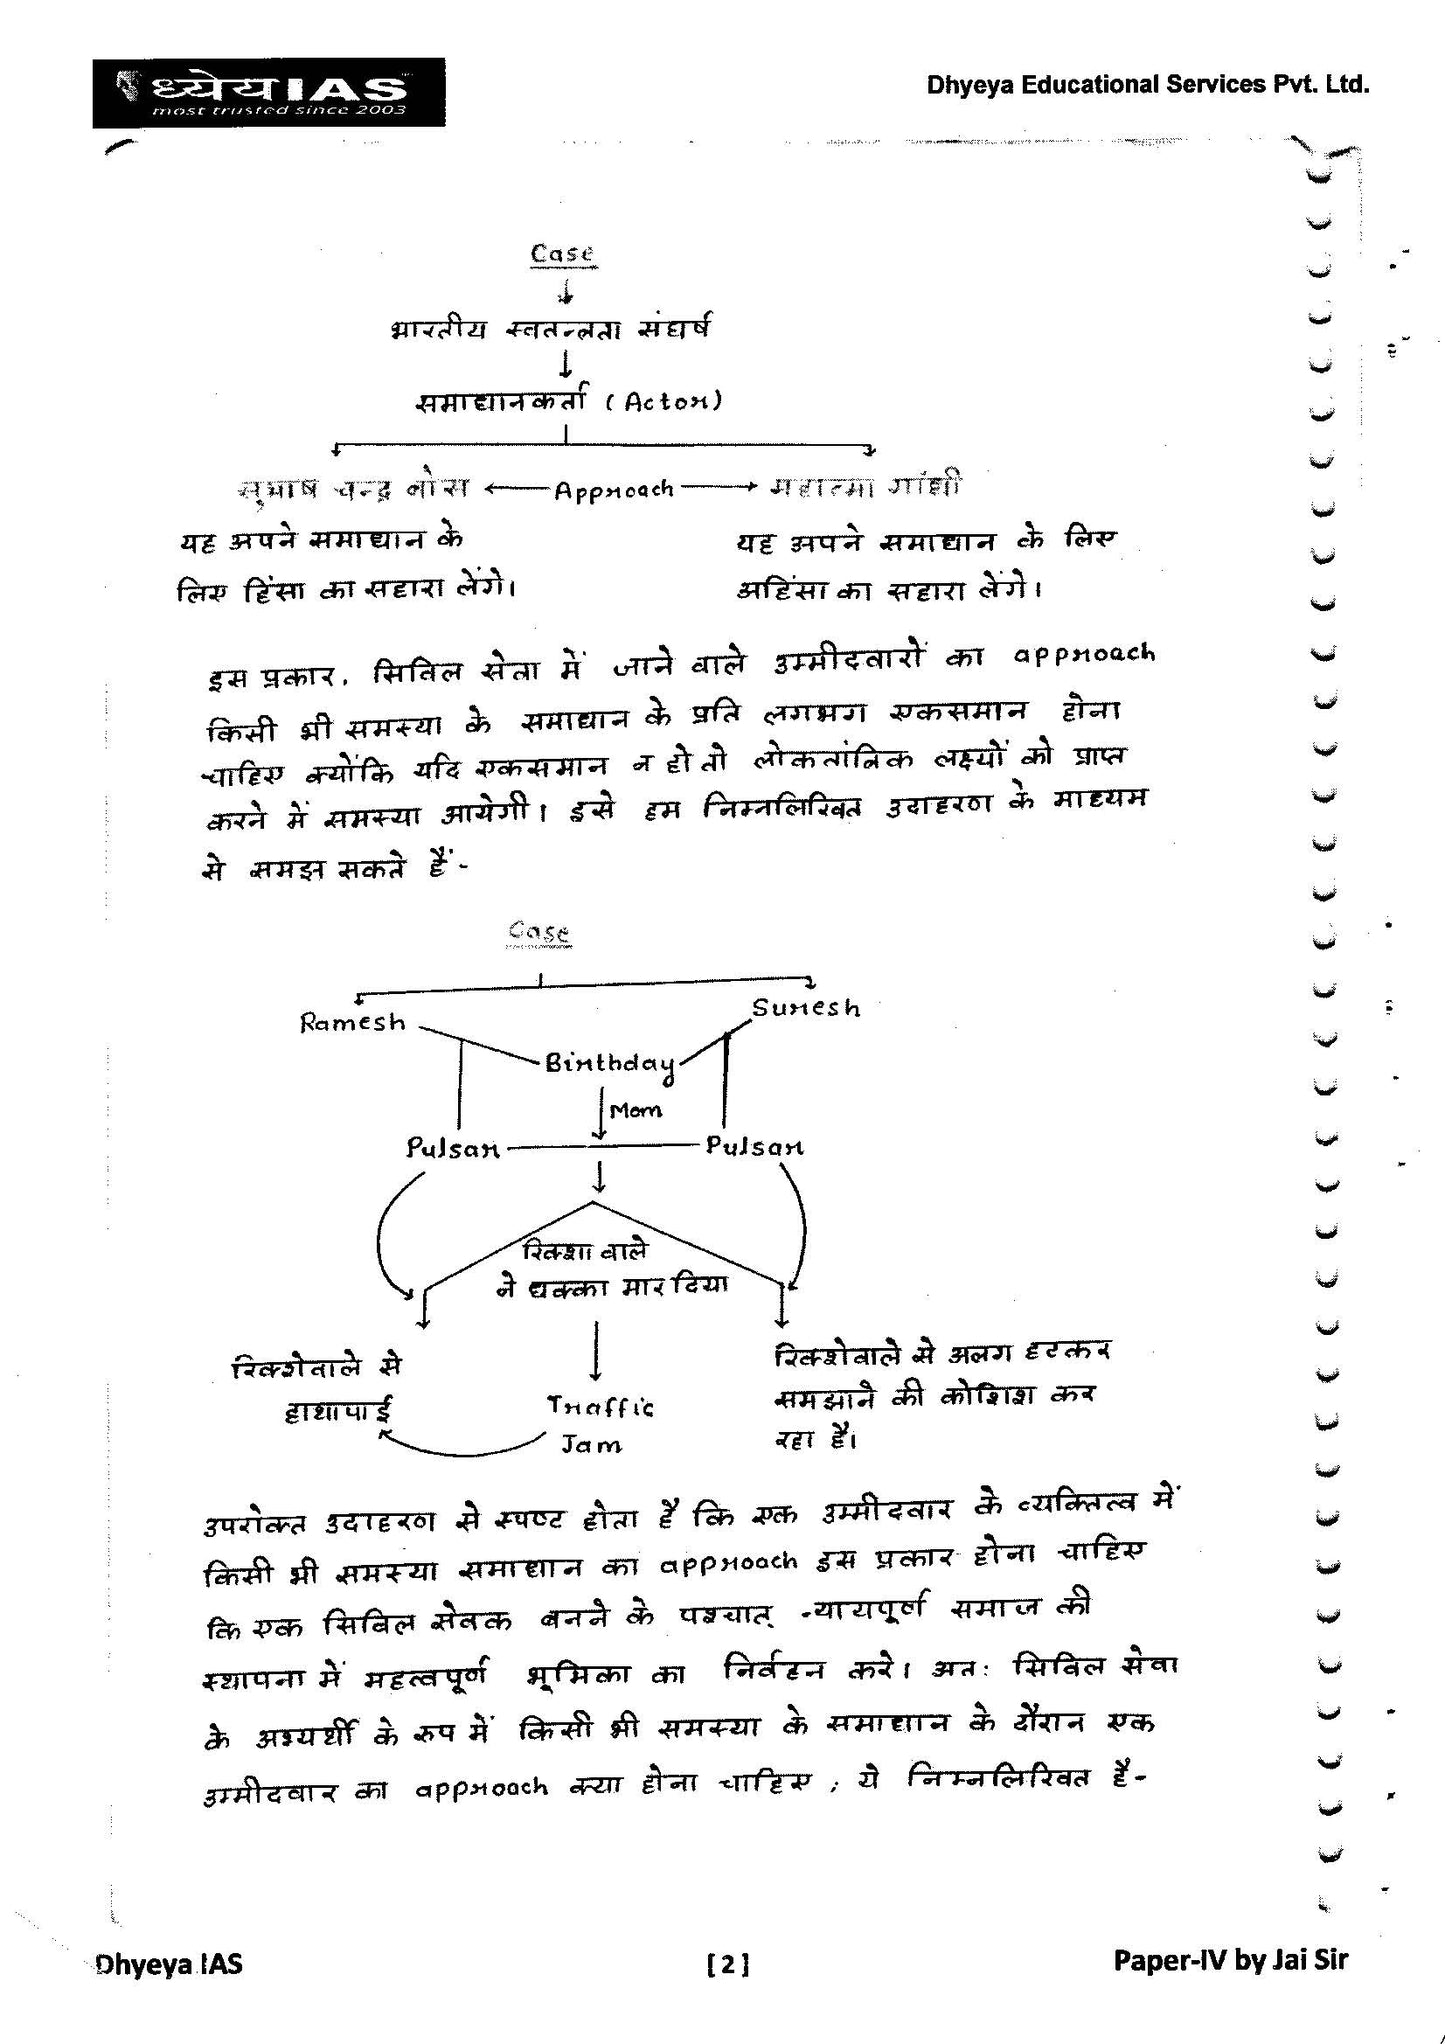 ध्येय IAS
most trusted since 2003
Dhyeya Educational Services Pvt. Ltd.
Case
भारतीय स्वतन्त्रता संघर्ष
समाधानकर्ता (Actor)
सुभाष चन्द्र बोस Approach महात्मा गांधी
यह अपने समाधान के
लिए हिंसा का सहारा लेंगे।
यह अपने समाधान के लिए
अहिंसा का सहारा लेंगे।
इस प्रकार, सिविल सेवा में जाने वाले उम्मीदवारों का approach
किसी भी समस्या के समाधान के प्रति लगभग एकसमान होना
चाहिए क्योंकि यदि एकसमान न हो तो लोकतांत्रिक लक्ष्यों को प्राप्त
करने में समस्या आयेगी। इसे हम निम्नलिखित उदाहरण के माध्यम
से समझ सकते हैं-
Case
Ramesh Suresh
Birthday
Mom
Pulsar Pulsar
रिक्शा वाले
ने धक्का मार दिया
रिक्शेवाले से
हाथापाई
Traffic
Jam
रिक्शेवाले से अलग हटकर
समझाने की कोशिश कर
रहा है।
उपरोक्त उदाहरण से स्पष्ट होता है कि एक उम्मीदवार के व्यक्तित्व में
किसी भी समस्या समाधान का approach इस प्रकार होना चाहिए
कि एक सिविल सेवक बनने के पश्चात् न्यायपूर्ण समाज की
स्थापना में महत्वपूर्ण भूमिका का निर्वहन करे। अतः सिविल सेवा
के अभ्यर्थी के रूप में किसी भी समस्या के समाधान के दौरान एक
उम्मीदवार का approach क्या होना चाहिए, ये निम्नलिखित है-
Dhyeya IAS
[2]
Paper-IV by Jai Sir